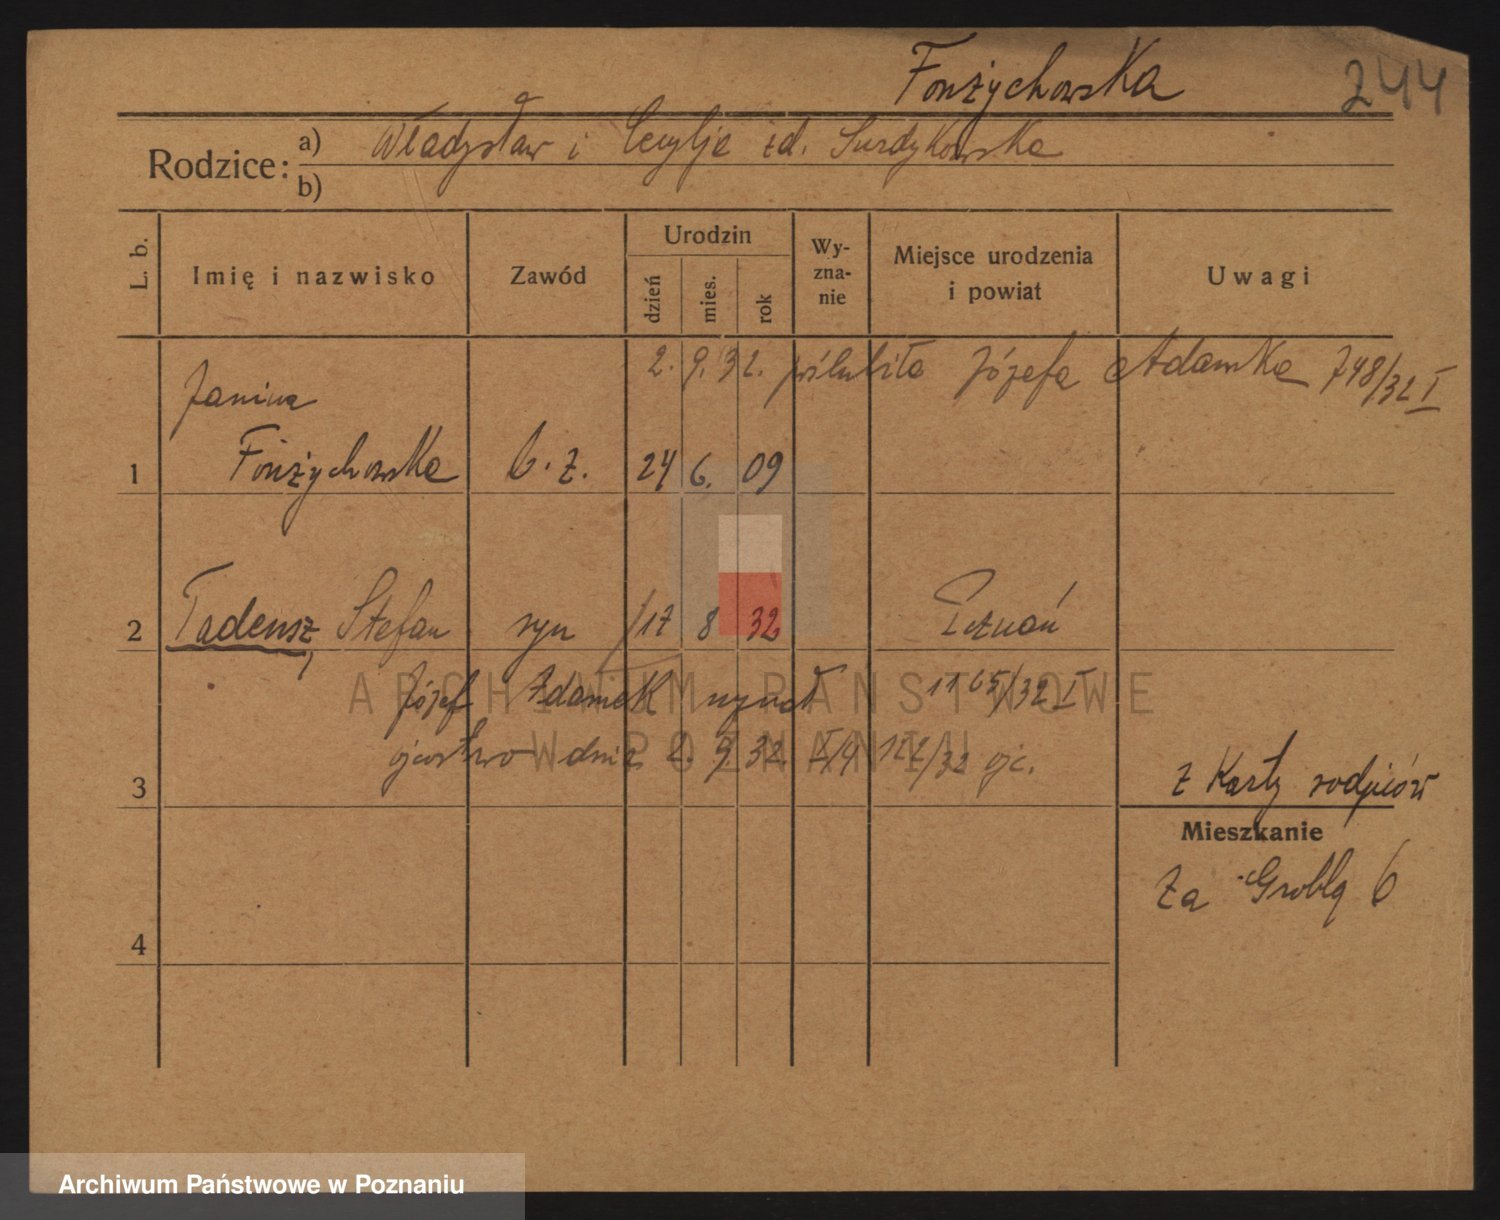 Fonżychowska 244
Rodzice: a) Władysław i Cecylja zd. Surdykowska
b)
L. b. Imię i nazwisko Zawód Urodzin dzień mies. rok Wy-zna-nie Miejsce urodzenia i powiat Uwagi
2. 9. 32. poślubiła Józefa Adamka 748/32 I
Janina
1 Fonżychowska b. z. 24 6. 09
2 Tadeusz, Stefan syn 17 8 32 Poznań
Józef Adamek uznał 1165/32 I
ojcostwo dnia 2. 9 32. 122/32 ojc.
3 z Karty rodziców
Mieszkanie
Za Groblą 6
4
ARCHIWUM PAŃSTWOWE
W POZNANIU
Archiwum Państwowe w Poznaniu